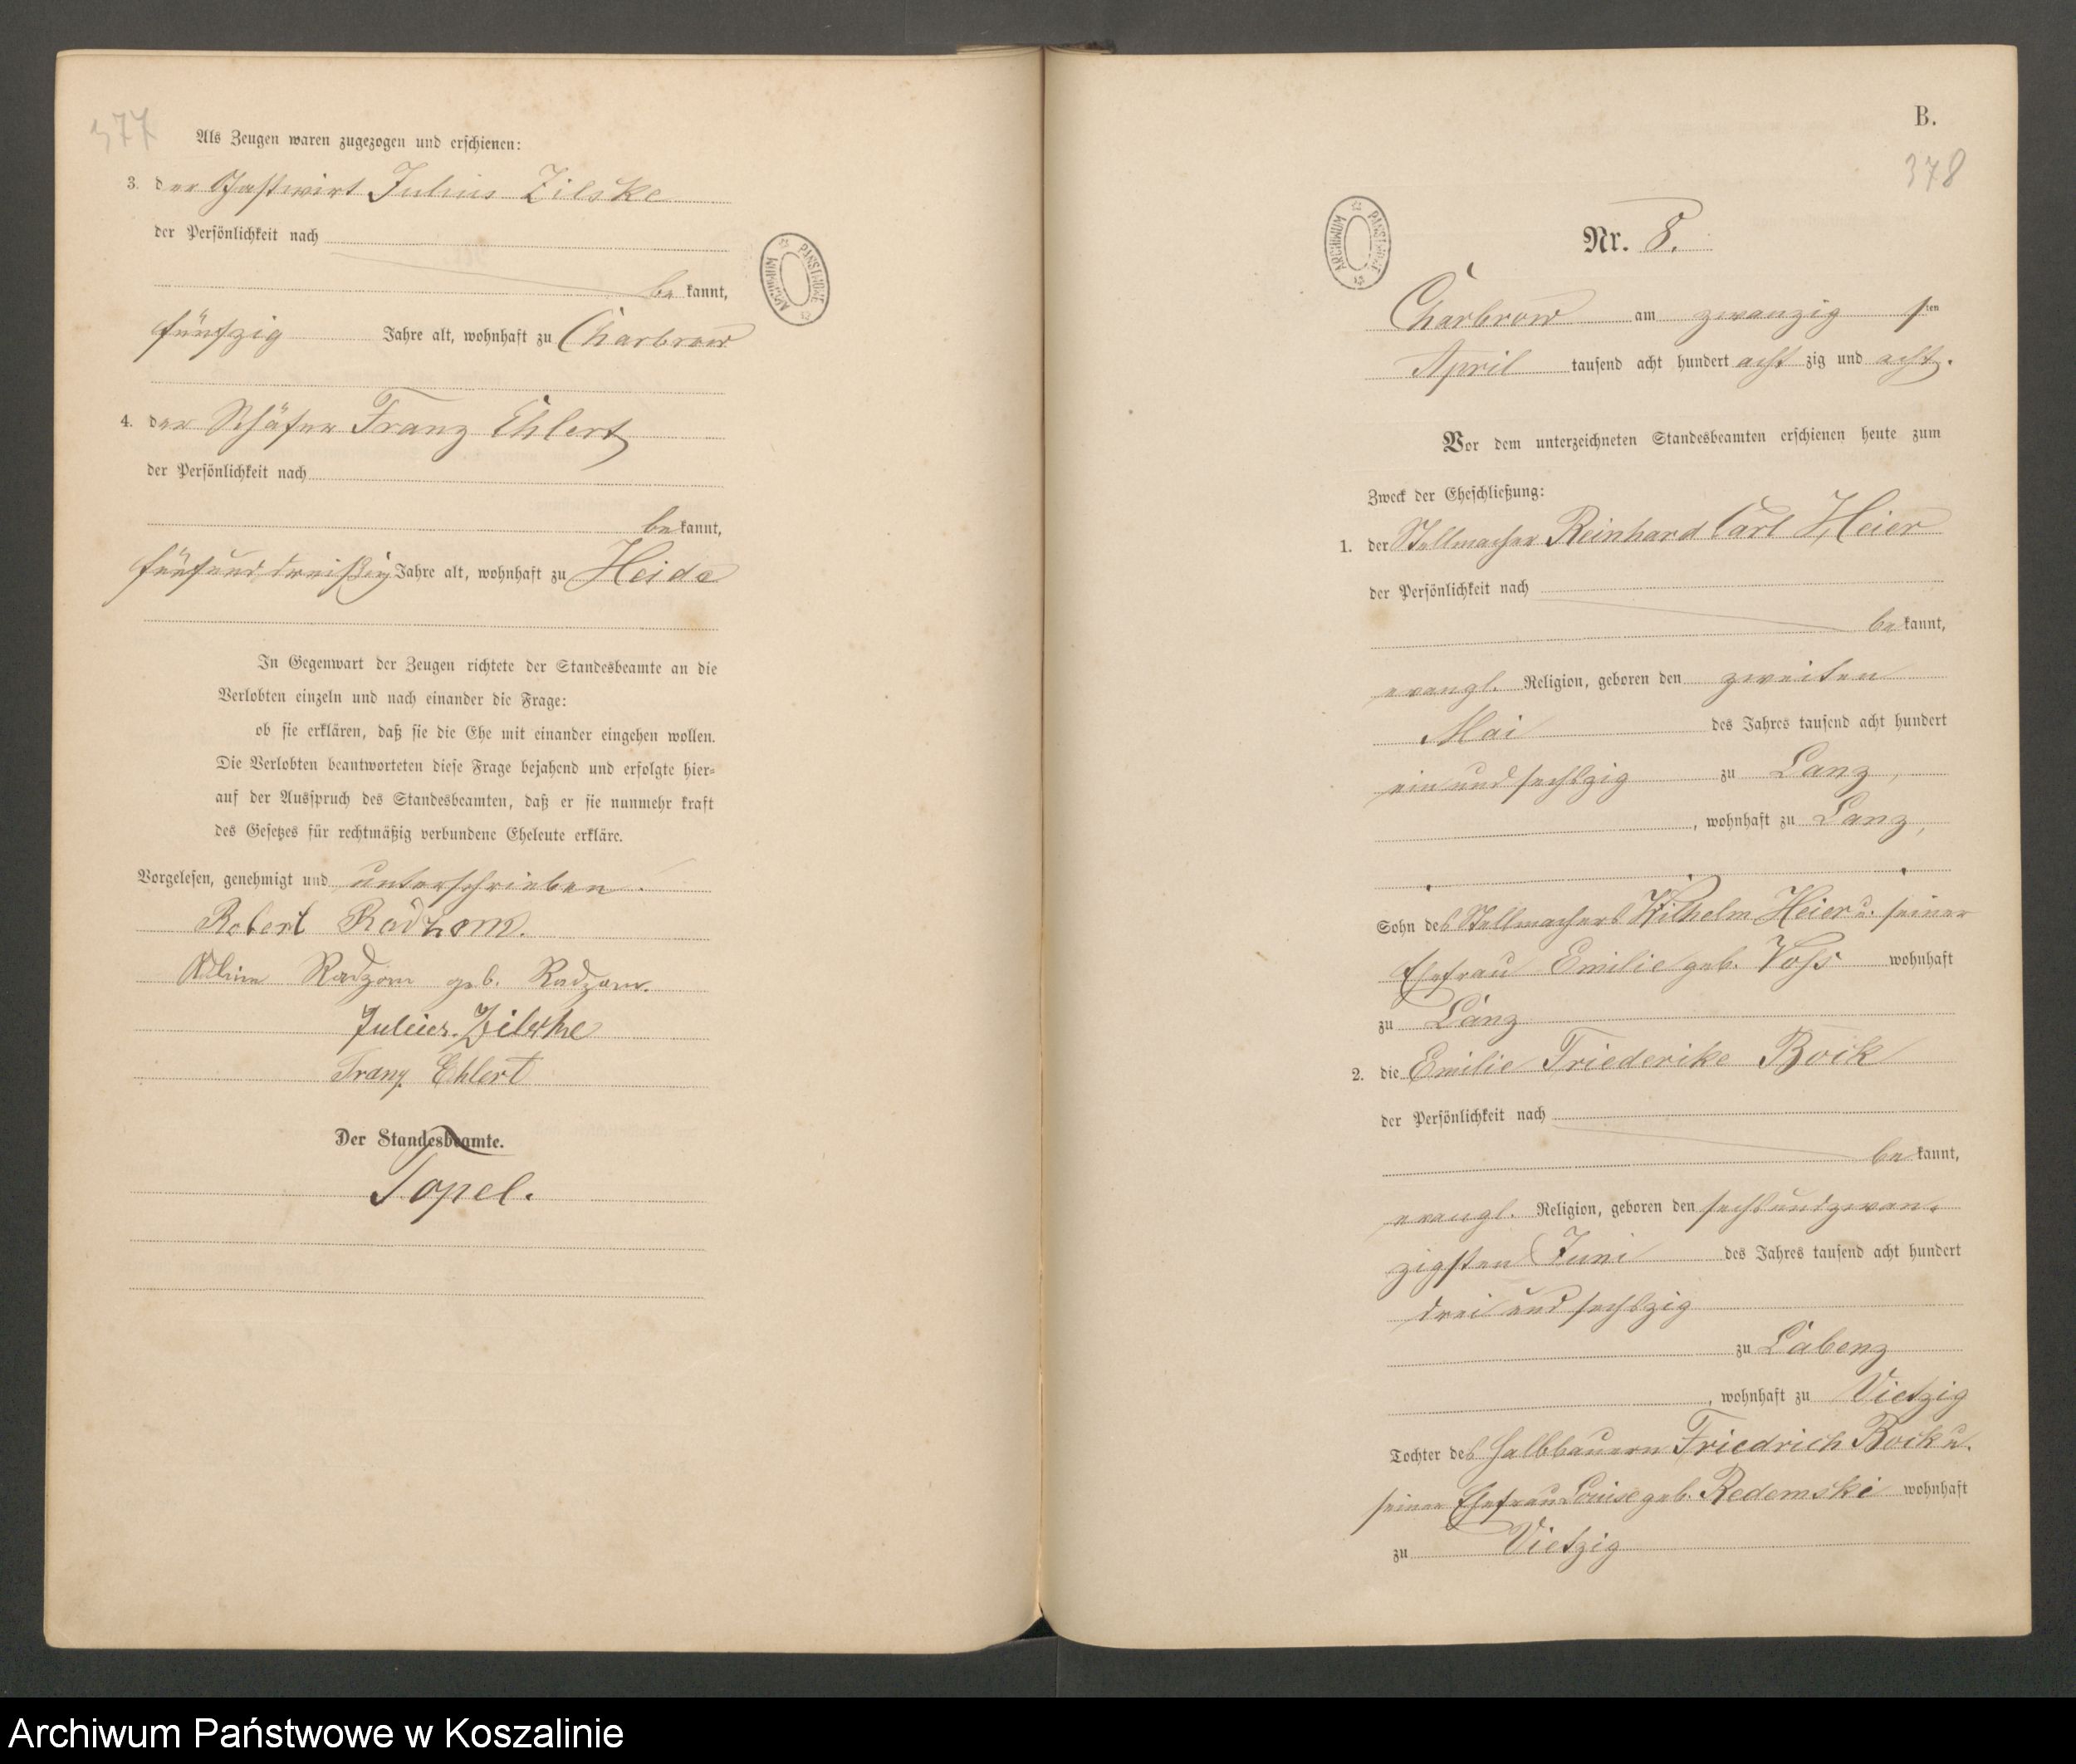 377
Als Zeugen waren zugezogen und erschienen:
3. der Gastwirt Julius Zilske
der Persönlichkeit nach
be kannt,
fünfzig Jahre alt, wohnhaft zu Charbrow
4. der Schäfer Franz Ehlert
der Persönlichkeit nach
be kannt,
fünfunddreißig Jahre alt, wohnhaft zu Heide
In Gegenwart der Zeugen richtete der Standesbeamte an die
Verlobten einzeln und nach einander die Frage:
ob sie erklären, daß sie die Ehe mit einander eingehen wollen.
Die Verlobten beantworteten diese Frage bejahend und erfolgte hier-
auf der Ausspruch des Standesbeamten, daß er sie nunmehr kraft
des Gesetzes für rechtmäßig verbundene Eheleute erkläre.
Vorgelesen, genehmigt und unterschrieben.
Robert Radzom.
Radzom geb. Radzom.
Julius Zilske
Franz Ehlert
Der Standesbeamte.
Topel.
ARCHIWUM PAŃSTWOWE
B.
378
ARCHIWUM PAŃSTWOWE
Nr. 8.
Charbrow am zwanzig sten
April tausend acht hundert acht zig und acht.
Vor dem unterzeichneten Standesbeamten erschienen heute zum
Zweck der Eheschließung:
1. der Stellmacher Reinhard Carl Heier
der Persönlichkeit nach
be kannt,
evangl. Religion, geboren den zweiten
Mai des Jahres tausend acht hundert
ein und sechszig zu Lanz,
, wohnhaft zu Lanz,
Sohn des Stellmachers Wilhelm Heier u. seiner
Ehefrau Emilie geb. Voss wohnhaft
zu Lanz
2. die Emilie Friederike Bock
der Persönlichkeit nach
be kannt,
evangl. Religion, geboren den sechsundzwan-
zigsten Juni des Jahres tausend acht hundert
drei und sechszig
zu Labenz
, wohnhaft zu Vietzig
Tochter des Halbbauern Friedrich Bock u.
seiner Ehefrau Louise geb. Redomski wohnhaft
zu Vietzig
Archiwum Państwowe w Koszalinie